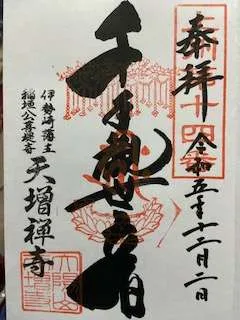 奉拝
令和五年十二月二日
千手観世音
伊勢崎藩主
稲垣公菩提寺
天増禅寺